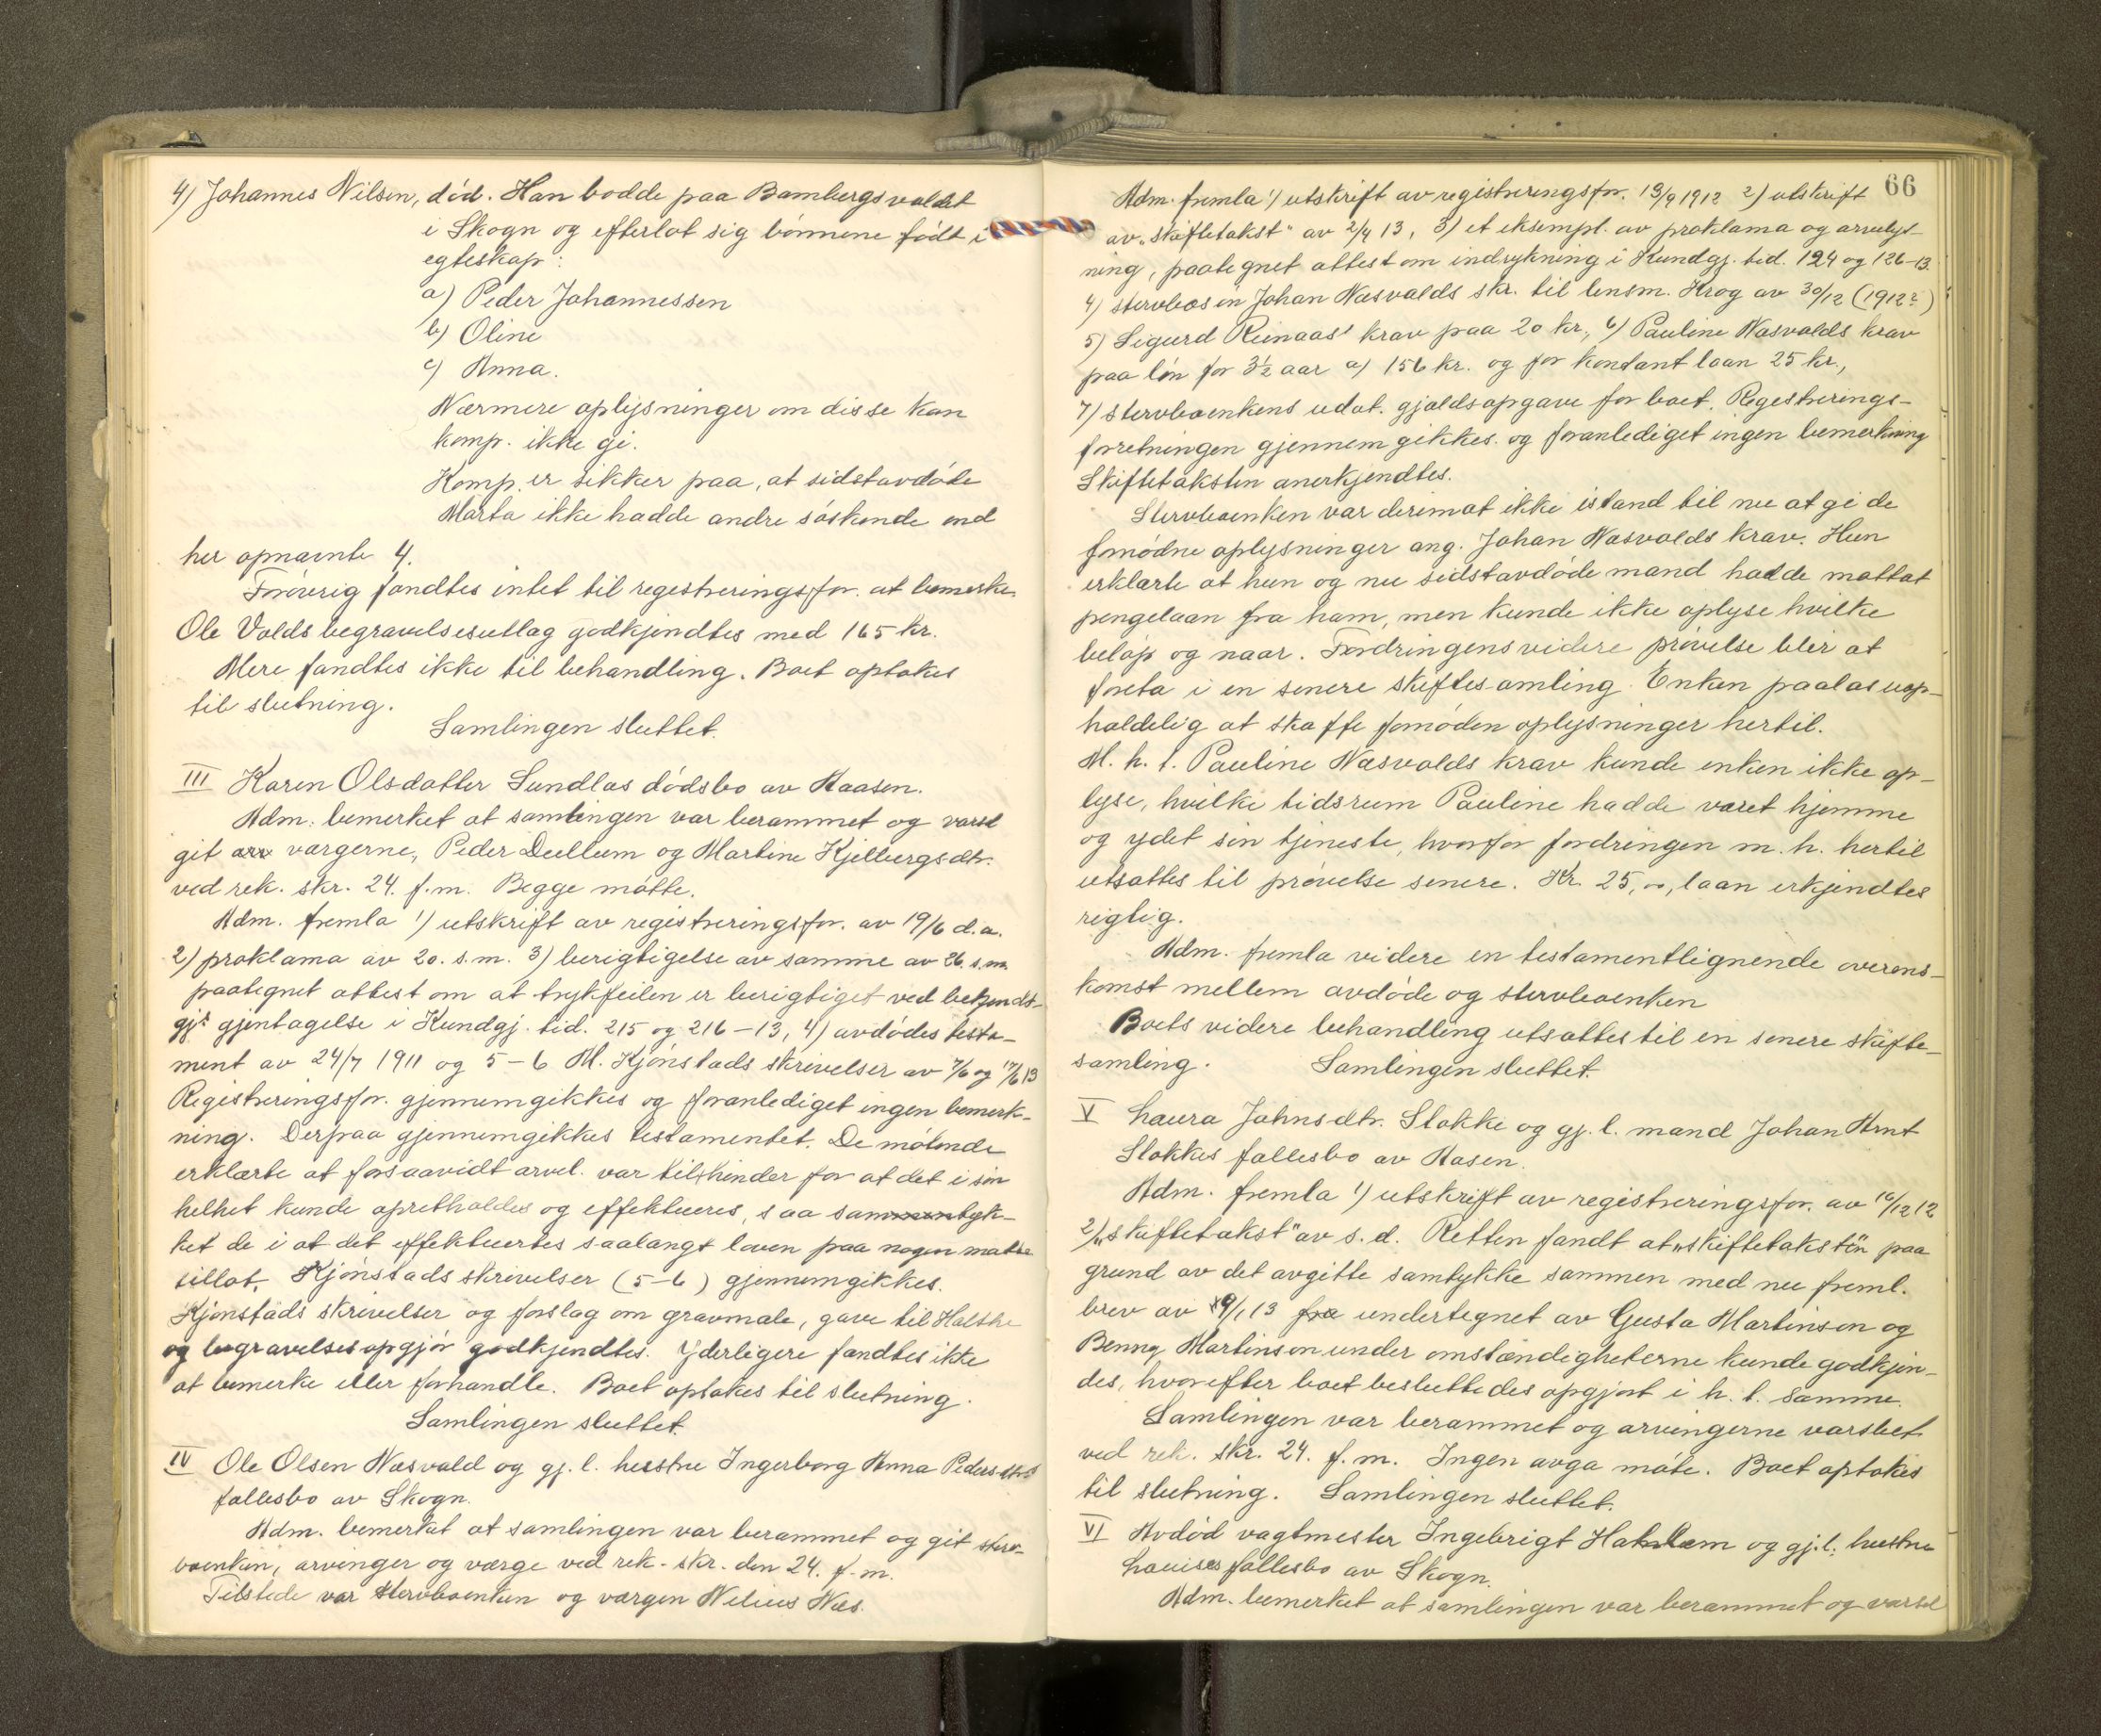 4) Johannes Nilsen, död. Han bodde paa Bambergsvaldet
i Skogn og efterlot sig börnene födt i
egteskap:
a) Peder Johannessen
b) Oline
c) Anna.
Nærmere oplysninger om disse kan
komp. ikke gi.
Komp. er sikker paa, at sidstavdöde
Marta ikke hadde andre söskende end
her opnævnte 4.
Forövrig fandtes intet til registreringsfor. at bemerke.
Ole Volds begravelsesutlag godkjendtes med 165 kr.
Mere fandtes ikke til behandling. Boet optokes
til slutning.
Samlingen sluttet.
III Karen Olsdatter Sundlas dödsbo av Aasen.
Adm. bemerket at samlingen var berammet og varsel
git arv værgerne, Peder Dullum og Martine Kjelbergsdtr.
ved rek. skr. 24. f.m. Begge mötte.
Adm. fremla 1) utskrift av registreringsfor. av 19/6 d.a.
2) proklama av 20. s.m. 3) berigtigelse av samme av 26. s.m.
paategnet attest om at trykfeilen er berigtiget ved bekjendt-
gjs gjentagelse i Kundgj. tid. 215 og 216-13, 4) avdödes testa-
ment av 24/7 1911 og 5-6 M. Kjönstads skrivelser av 7/6 og 17/6 13
Registreringsfor. gjennemgikkes og foranlediget ingen bemerk-
ning. Derpaa gjennemgikkes testamentet. De mötende
erklærte at forsaavidt arvel. var tilhinder for at det i sin
helhet kunde opretholdes og effektueres, saa sammentyk-
ket de i at det effektuertes saalangt loven paa nogen maate
tillot. Kjönstads skrivelser (5-6) gjennemgikkes.
Kjönstads skrivelser og forslag om gravmæle, gave til
og begravelsesopgjör godkjendtes. Yderligere fandtes ikke
at bemerke eller forhandle. Boet optokes til slutning.
Samlingen sluttet.
IV Ole Olsen Næsvald og gj. l. hustru Ingerborg Anna Pedersdtrs
fællesbo av Skogn.
Adm. bemerket at samlingen var berammet og git sterv-
boenken, arvinger og værge ved rek. skr. den 24. f.m.
Tilstede var stervboenken og værgen Nelius Næs.
66
Adm. fremla 1) utskrift av registreringsfor. 13/9 1912 2) utskrift
av "skiftetakst" av 2/4 13, 3) et eksempl. av proklama og arvelys-
ning, paategnet attest om indrykning i Kundgj. tid. 124 og 126-13.
4) stervboesen Johan Næsvalds skr. til lensm. Krog av 30/12 (1912?)
5) Sigurd Reinaas' krav paa 20 kr., 6) Pauline Næsvalds krav
paa lön for 3½ aar a) 156 kr. og for kontant laan 25 kr.,
7) stervboenkens udat. gjældsopgave for boet. Registrerings-
forretningen gjennemgikkes og foranlediget ingen bemerkning
Skiftetaksten anerkjendtes.
Stervboenken var derimot ikke istand til nu at gi de
fornödne oplysninger ang. Johan Næsvalds krav. Hun
erklærte at hun og nu sidstavdöde mand hadde mottat
pengelaan fra ham, men kunde ikke oplyse hvilke
belöp og naar. Fordringens videre prövelse blir at
foreta i en senere skiftesamling. Enken paalas uop-
holdelig at skaffe fornöden oplysninger hertil.
M. h. t. Pauline Næsvalds krav kunde enken ikke op-
lyse, hvilke tidsrum Pauline hadde været hjemme
og ydet sin tjeneste, hvorfor fordringen m. h. hertil
utsattes til prövelse senere. Kr. 25,00, laan erkjendtes
rigtig.
Adm. fremla videre en testamentlignende overens-
komst mellem avdöde og stervboenken
Boets videre behandling utsattes til en senere skifte-
samling. Samlingen sluttet.
V Laura Johnsdtr. Stokke og gj. l. mand Johan Arnt
Stokkes fællesbo av Aasen.
Adm. fremla 1) utskrift av registreringsfor. av 16/12 12
2) "skiftetakst" av s. d. Retten fandt at "skiftetaksten" paa
grund av det avgitte samtykke sammen med nu freml.
brev av 19/1 13 fra undertegnet av Gusta Martinson og
Benny Martinson under omstændigheterne kunde godkjen-
des, hvorefter boet besluttedes opgjort i h. t. samme.
Samlingen var berammet og arvingerne varslet
ved rek. skr. 24. f.m. Ingen avga möte. Boet optokes
til slutning. Samlingen sluttet.
VI Avdöd vagtmester Ingebrigt Hahlem og gj. l. hustru
Louises fællesbo av Skogn.
Adm. bemerket at samlingen var berammet og varsel